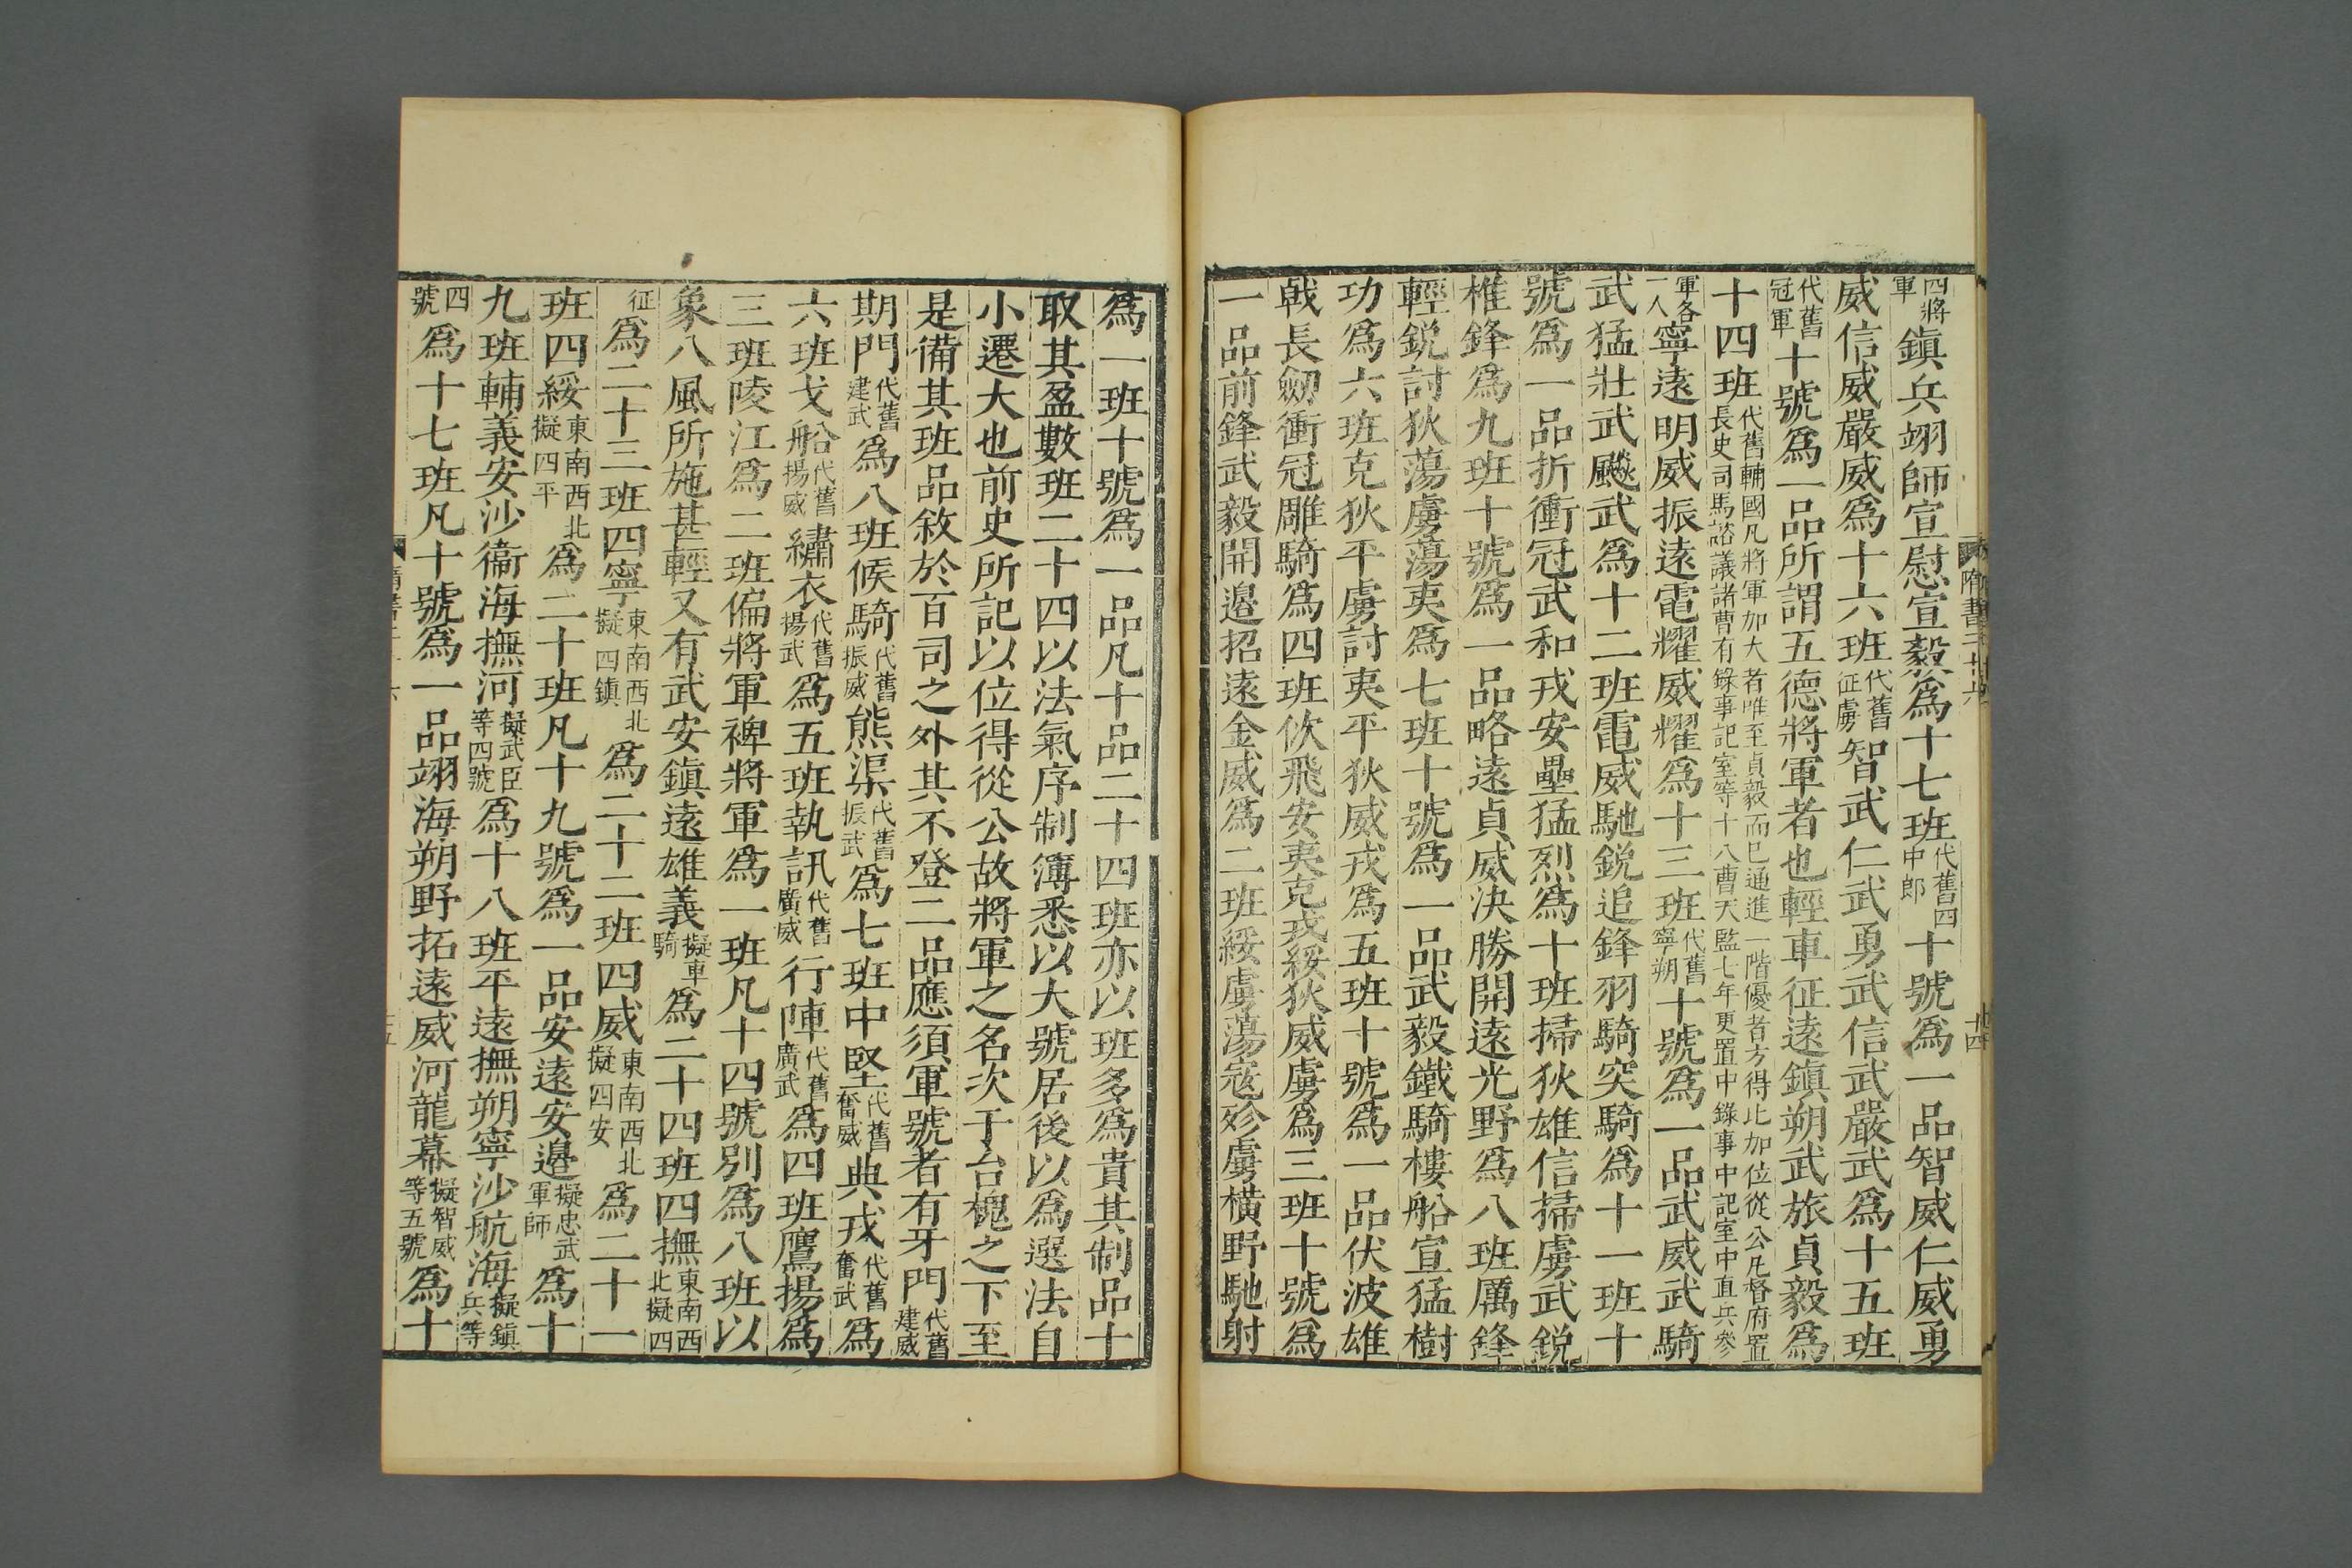 四將軍鎮兵翊師宣慰宣毅爲十七班代舊四中郎十號爲一品智威仁威勇
威信威嚴威爲十六班代舊征虜智武仁武勇武信武嚴武爲十五班
代舊冠軍十號爲一品所謂五德將軍者也輕車征遠鎮朔武旅貞毅爲
十四班代舊輔國凡將軍加大者唯至貞毅而已通進一階優者方得比加位從公凡督府置長史司馬諮議諸曹有錄事記室等十八曹天監七年更置中錄事中記室中直兵參
軍各一人寧遠明威振遠電耀威耀爲十三班代舊寧朔十號爲一品武威武騎
武猛壯武飈武爲十二班電威馳銳追鋒羽騎突騎爲十一班十
號爲一品折衝冠武和戎安壘猛烈爲十班掃狄雄信掃虜武銳
椎鋒爲九班十號爲一品略遠貞威決勝開遠光野爲八班厲鋒
輕銳討狄蕩虜蕩夷爲七班十號爲一品武毅鐵騎樓船宣猛樹
功爲六班克狄平虜討夷平狄威戎爲五班十號爲一品伏波雄
戟長劒衝冠雕騎爲四班佽飛安夷克戎綏狄威虜爲三班十號爲
一品前鋒武毅開邉招遠金威爲二班綏虜蕩寇殄虜橫野馳射
爲一班十號爲一品凡十品二十四班亦以班多爲貴其制品十
取其盈數班二十四以法氣序制簿悉以大號居後以爲選法自
小遷大也前史所記以位得從公故將軍之名次于台槐之下至
是備其班品敘於百司之外其不登二品應須軍號者有牙門代舊建威
期門代舊建武爲八班候騎代舊振威熊渠代舊振武爲七班中堅代舊奮威典戎代舊奮武爲
六班戈船代舊揚威繡衣代舊揚武爲五班執訊代舊廣威行陣代舊廣武爲四班鷹揚爲
三班陵江爲二班偏將軍裨將軍爲一班凡十四號別爲八班以
象八風所施甚輕又有武安鎮遠雄義擬車騎爲二十四班四撫東南西北擬四
征爲二十三班四寧東南西北擬四鎮爲二十二班四威東南西北擬四安爲二十一
班四綏東南西北擬四平爲二十班凡十九號爲一品安遠安邉擬忠武軍師爲十
九班輔義安沙衞海撫河擬武臣等四號爲十八班平遠撫朔寧沙航海擬鎮兵等
四號爲十七班凡十號爲一品翊海朔野拓遠威河龍幕擬智威等五號爲十